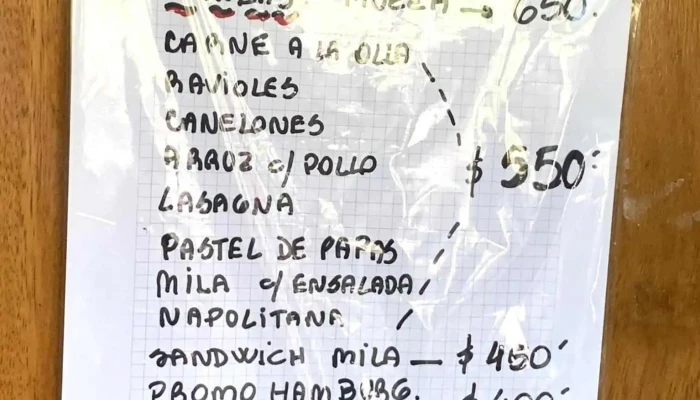 650.
CARNE A LA OLLA
RAVIOLES
CANELONES
ARROZ c/ POLLO $ 550.
LASAGNA
PASTEL DE PAPAS
MILA c/ ENSALADA
NAPOLITANA
SANDWICH MILA — $ 450
PROMO HAMBURG.